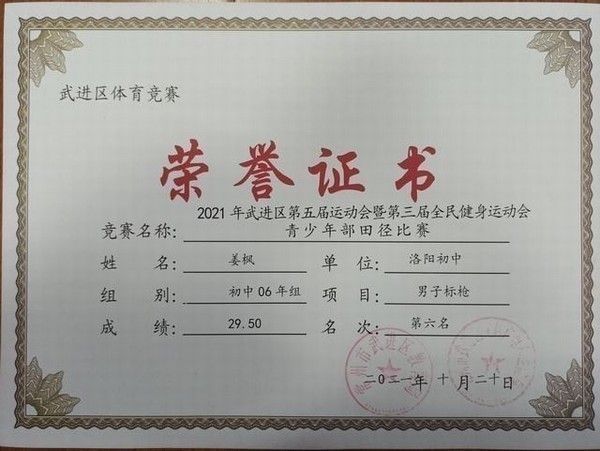 武进区体育竞赛
荣誉证书
2021年武进区第五届运动会暨第三届全民健身运动会
竞赛名称: 青少年部田径比赛
姓 名: 姜枫 单 位: 洛阳初中
组 别: 初中06年组 项 目: 男子标枪
成 绩: 29.50 名 次: 第六名
常州市武进区教
二〇二一年 十月二十日